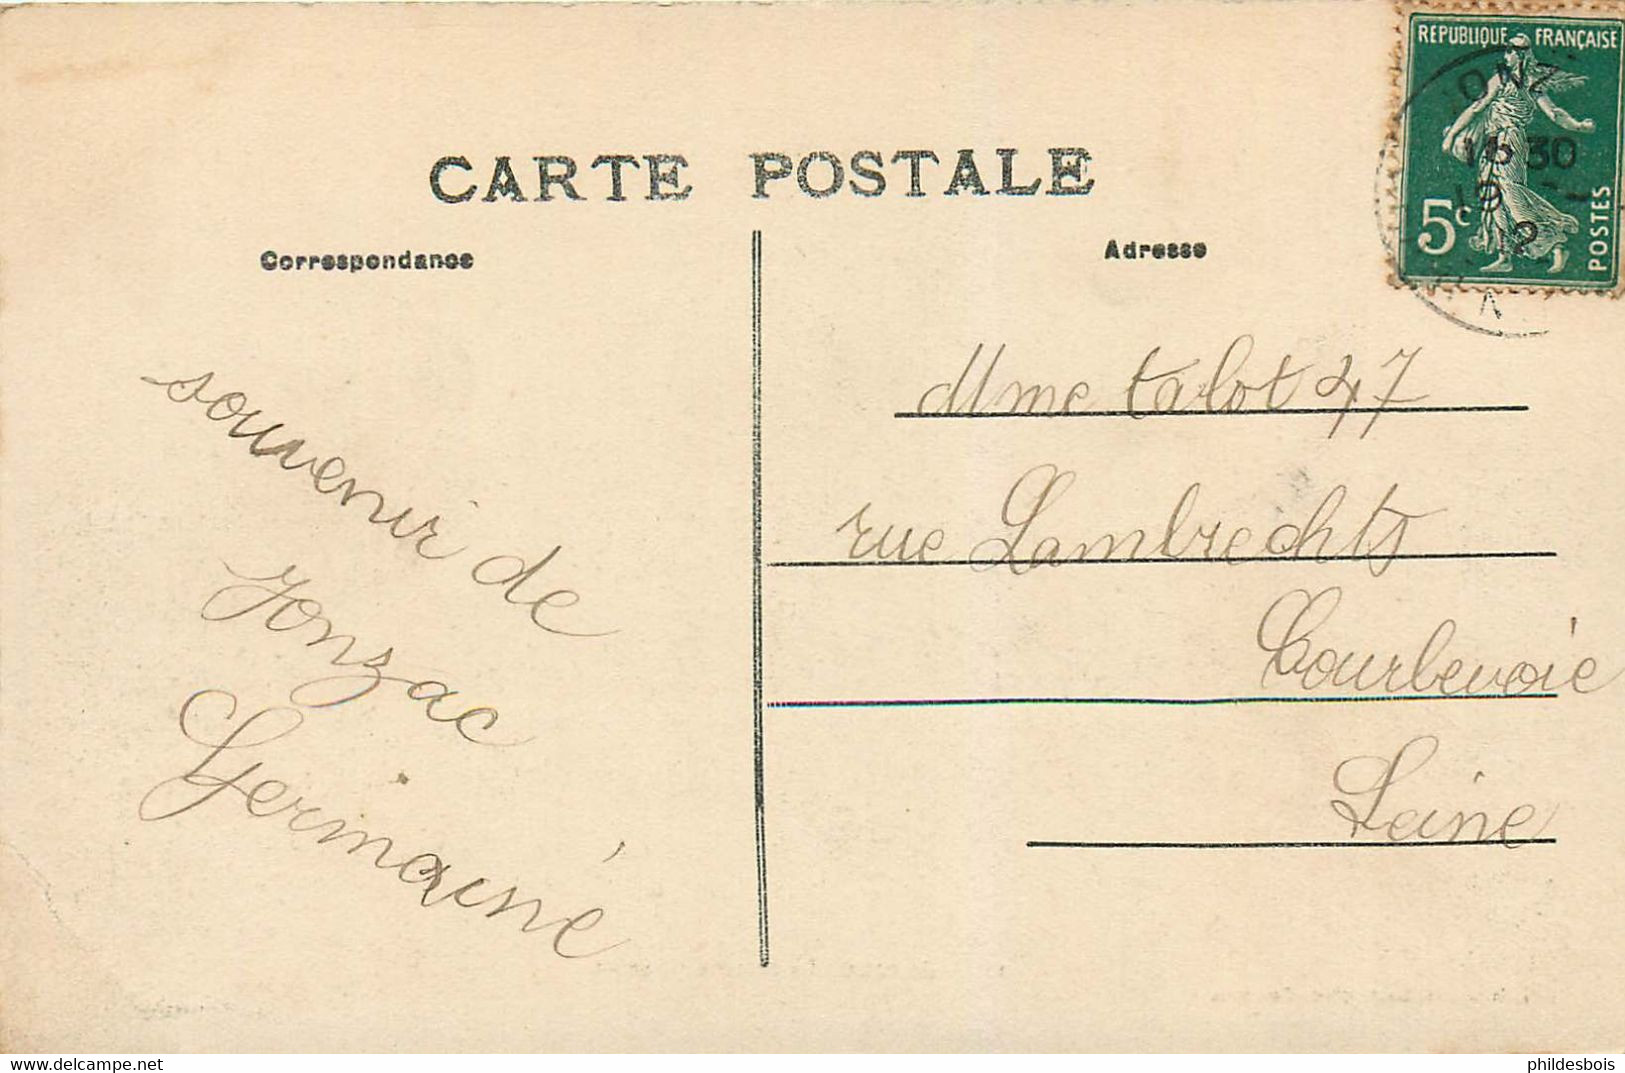 CARTE POSTALE
Correspondance
Adresse
RÉPUBLIQUE FRANÇAISE
5c
POSTES
ONZ
16 30
19
12
souvenir de
Jonzac
Germaine
Mme talot 47
rue Lambrechts
Courbevoie
Seine
delcampe.net
phildesbois